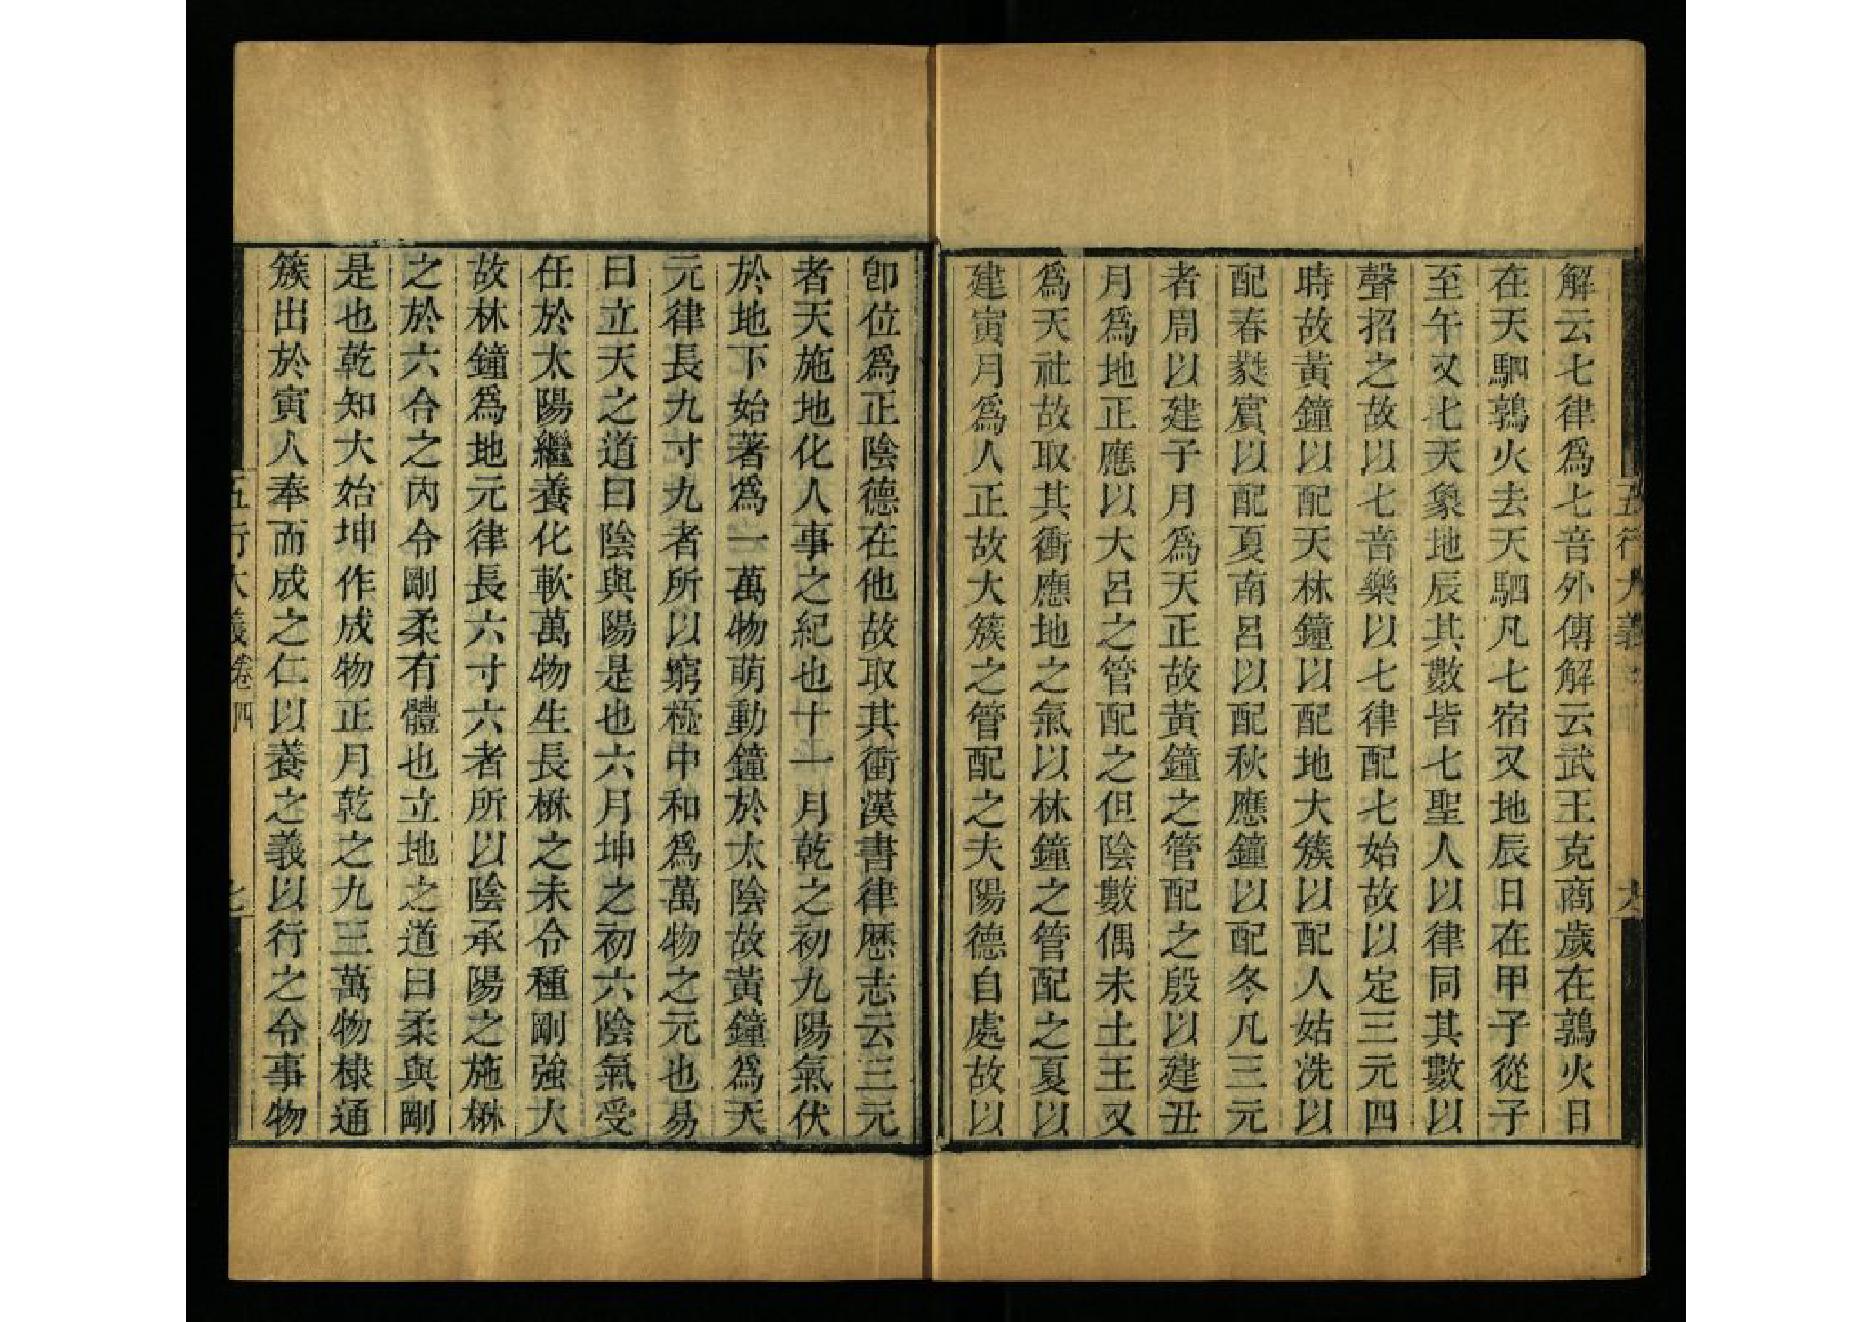 解云七律爲七音外傳解云武王克商歲在鶉火日
在天駟鶉火去天駟凡七宿又地辰日在甲子從子
至午又七天象地辰其數皆七聖人以律同其數以
聲招之故以七音樂以七律配七始故以定三元四
時故黃鐘以配天林鐘以配地大簇以配人姑洗以
配春蕤賓以配夏南呂以配秋應鐘以配冬凡三元
者周以建子月爲天正故黃鐘之管配之殷以建丑
月爲地正應以大呂之管配之但陰數偶未土王又
爲天社故取其衝應地之氣以林鐘之管配之夏以
建寅月爲人正故大簇之管配之夫陽德自處故以
卽位爲正陰德在他故取其衝漢書律歷志云三元
者天施地化人事之紀也十一月乾之初九陽氣伏
於地下始著爲一萬物萌動鐘於太陰故黃鐘爲天
元律長九寸九者所以窮極中和爲萬物之元也易
曰立天之道曰陰與陽是也六月坤之初六陰氣受
任於太陽繼養化軟萬物生長楙之未令種剛強大
故林鐘爲地元律長六寸六者所以陰承陽之施楙
之於六合之內令剛柔有體也立地之道曰柔與剛
是也乾知大始坤作成物正月乾之九三萬物棣通
簇出於寅人奉而成之仁以養之義以行之令事物
五行大義卷四
七